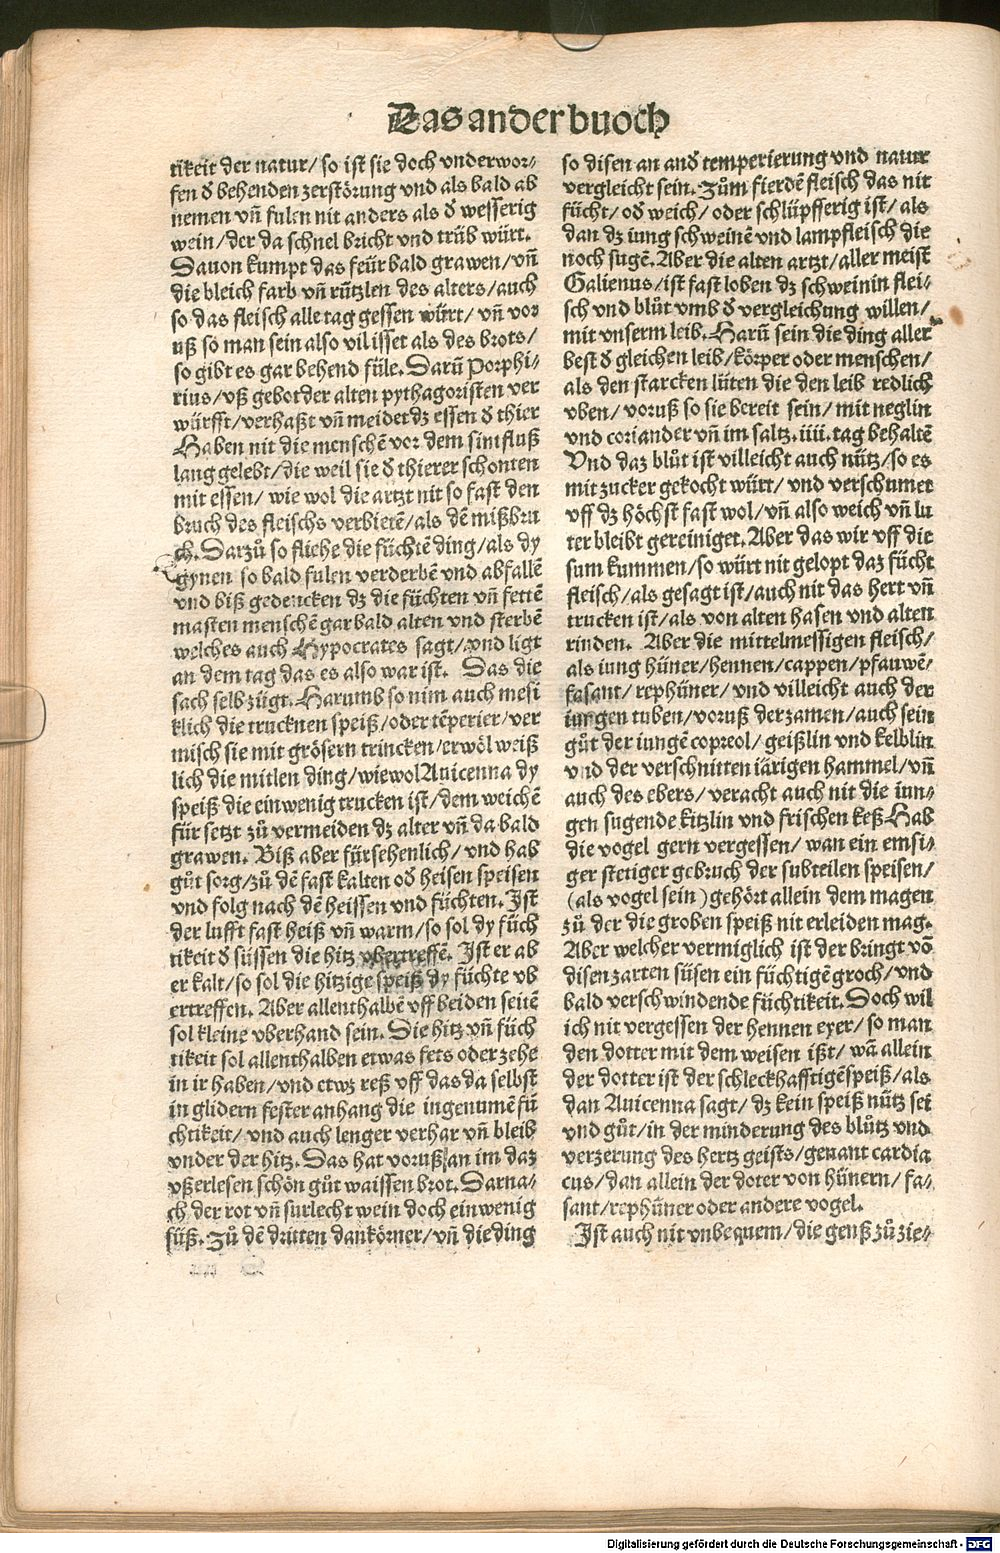 Das ander buoch
tikeit der natur/ so ist sie doch vnderwor-
fen ď behenden zerstörung vnd als bald ab
nemen vñ fulen nit anders als ď wesserig
wein/ der da schnel bricht vnd trüb würt.
Dauon kumpt das feür bald grawen/ vñ
die bleich farb vñ rüntzlen des alters/ auch
so das fleisch alle tag gessen würt/ vñ vor
uß so man sein also vil isset als des brots/
so gibt es gar behend füle. Darũ Porphi-
rius/ vß gebot der alten pythagoristen ver
würfft/ verhaßt vñ meidet dz essen ď thier
Haben nit die menschẽ vor dem sintfluß
lang gelebt/ die weil sie ď thierer schonten
mit essen/ wie wol die artzt nit so fast den
bruch des fleischs verbietẽ/ als dẽ mißbru
ch. Darzů so fliehe die füchtẽ ding/ als dy
gynen so bald fulen verderbẽ vnd abfallẽ
vnd biß gedencken dz die füchten vñ fettẽ
masten menschẽ gar bald alten vnd sterbẽ
welches auch Hypocrates sagt/ vnd ligt
an dem tag das es also war ist. Das die
sach selb zügt. Harumb so nim auch mesi
klich die trucknen speiß/ oder tẽperier/ ver
misch sie mit grösern trincken/ erwöl weiß
lich die mitlen ding/ wiewol Auicenna dy
speiß die ein wenig trucken ist/ dem weichẽ
für setzt zů vermeiden dz alter vñ da bald
grawen. Biß aber fürsehenlich/ vnd hab
gůt sorg/ zů dẽ fast kalten oď heisen speisen
vnd folg nach dẽ heissen vnd füchten. Ist
der lufft fast heiß vñ warm/ so sol dy füch
tikeit ď süssen die hitz vbertreffẽ. Ist er ab
er kalt/ so sol die hitzige speiß dy füchte vb
ertreffen. Aber allenthalbẽ vff beiden seitẽ
sol kleine vberhand sein. Die hitz vñ füch
tikeit sol allenthalben etwas fets oder zehe
in ir haben/ vnd etwz reß vff das da selbst
in glidern fester anhang die ingenumẽ fü
chtikeit/ vnd auch lenger verhar vñ bleib
vnder der hitz. Das hat voruß an im daz
vßerlesen schön gůt waissen brot. Darna-
ch der rot vñ surlecht wein doch ein wenig
süß. Zů dẽ dritten dankörner/ vñ die ding
so disen an anď temperierung vnd natur
vergleicht sein. Zům fierdẽ fleisch das nit
fücht/ oď weich/ oder schlüpfferig ist/ als
dan dz iung schweinẽ vnd lampfleisch die
noch sugẽ. Aber die alten artzt/ aller meist
Galienus/ ist fast loben dz schweinin flei-
sch vnd blůt vmb ď vergleichung willen/
mit vnserm leib. Harũ sein die ding aller
best ď gleichen leib/ körper oder menschen/
als den starcken lüten die den leib redlich
vben/ voruß so sie bereit sein/ mit neglin
vnd coriander vñ im saltz .iiii. tag behaltẽ
Vnd daz blůt ist villeicht auch nütz/ so es
mit zucker gekocht würt/ vnd verschumet
vff dz höchst fast wol/ vñ also weich vñ lu
ter bleibt gereiniget. Aber das wir vff die
sum kummen/ so würt nit gelopt daz fücht
fleisch/ als gesagt ist/ auch nit das hert vñ
trucken ist/ als von alten hasen vnd alten
rinden. Aber die mittelmessigen fleisch/
als iung hüner/ hennen/ cappen/ pfauwẽ/
fasant/ rephüner/ vnd villeicht auch der
iungen tuben/ voruß der zamen/ auch sein
gůt der iungẽ copreol/ geißlin vnd kelblin
vnd der verschnitten iärigen hammel/ vñ
auch des ebers/ veracht auch nit die iun-
gen sugende kitzlin vnd frischen keß Hab
die vogel gern vergessen/ wan ein emsi-
ger stetiger gebruch der subteilen speisen/
(als vogel sein) gehört allein dem magen
zů der die groben speiß nit erleiden mag.
Aber welcher vermiglich ist der bringt võ
disen zarten süsen ein füchtigẽ groch/ vnd
bald verschwindende füchtikeit. Doch wil
ich nit vergessen der hennen eyer/ so man
den dotter mit dem weisen ißt/ wã allein
der dotter ist der schleckhafftigẽ speiß/ als
dan Auicenna sagt/ dz kein speiß nütz sei
vnd gůt/ in der minderung des blůtz vnd
verzerung des hertz geists/ genant cardia
cus/ dan allein der doter von hünern/ fa-
sant/ rephüner oder andere vogel.
Ist auch nit vnbequem/ die genß zů zie-
Digitalisierung gefördert durch die Deutsche Forschungsgemeinschaft - DFG